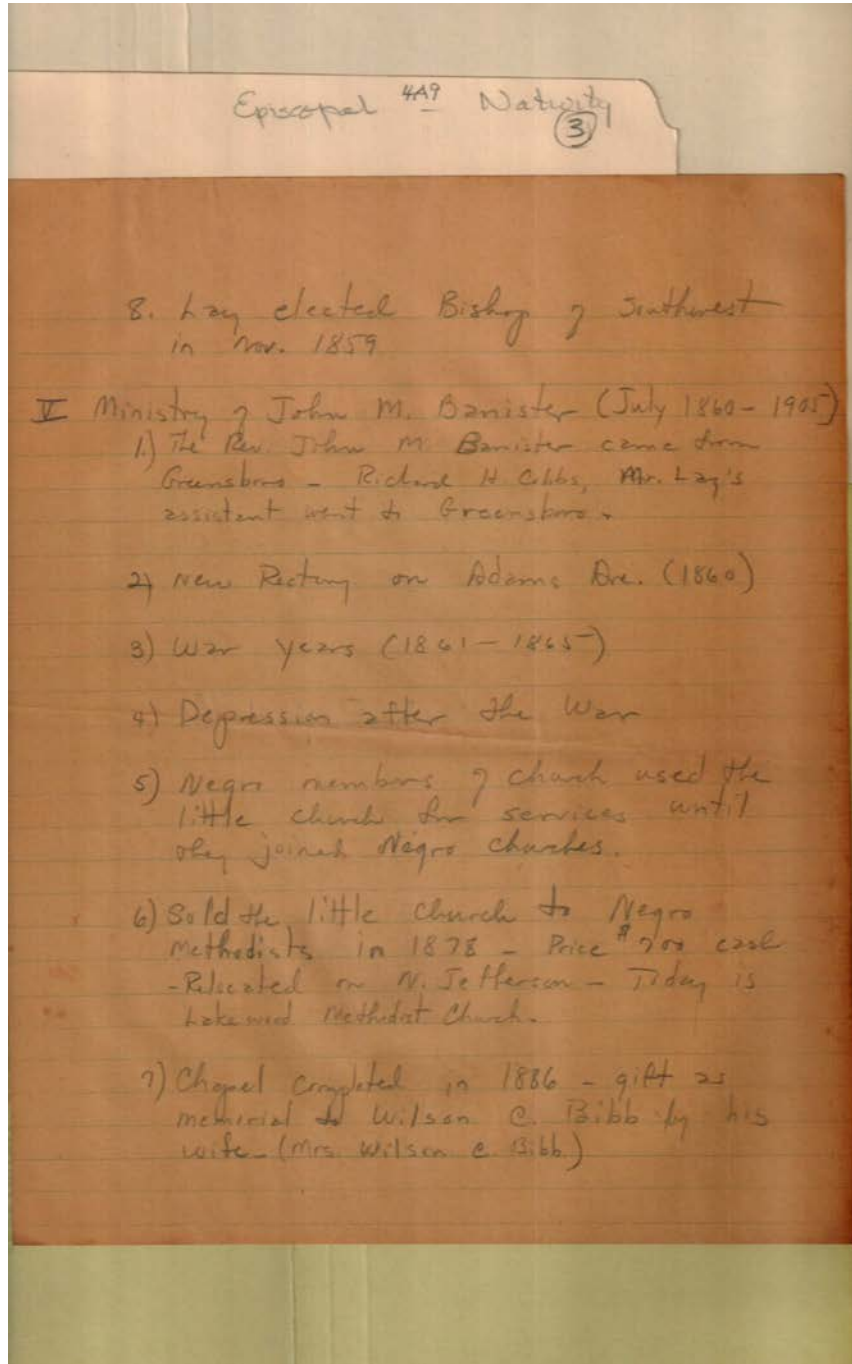 Episcopal 4A9 Nativity
3
8. Lay elected Bishop of Southwest
in Nov. 1859
V Ministry of John M. Banister (July 1860-1905)
1.) The Rev. John M. Banister came from
Greensboro - Richard H Cobbs, Mr. Lay's
assistant went to Greensboro.
2) New Rectory on Adams Ave. (1860)
3) War years (1861-1865)
4) Depression after the War
5) Negro members of church used the
little church for services until
they joined Negro churches.
6) Sold the little church to Negro
Methodists in 1878 - Price $700 cash
- Relocated on N. Jefferson - Today is
Lakewood Methodist Church.
7) Chapel completed in 1886 - gift as
memorial to Wilson C. Bibb by his
wife - (Mrs Wilson C. Bibb)